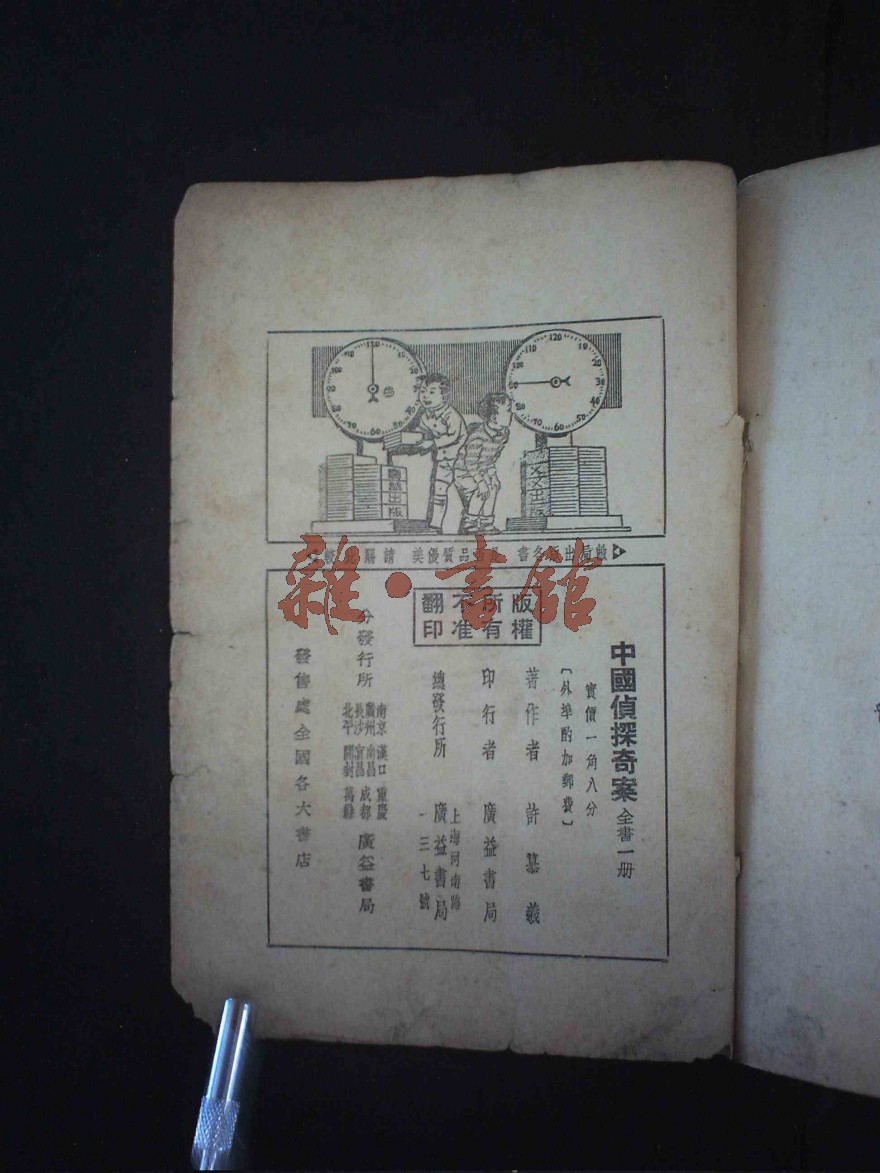 廣益出版
××出版
版權所有
不准翻印
中國偵探奇案 全書一册
實價一角八分
〔外埠酌加郵費〕
著作者 許慕羲
印行者 廣益書局
總發行所 上海河南路一三七號 廣益書局
分發行所 南京 漢口 重慶 廣州 南昌 成都 長沙 宜昌 北平 開封 廣益書局
發售處全國各大書店
雜·書館